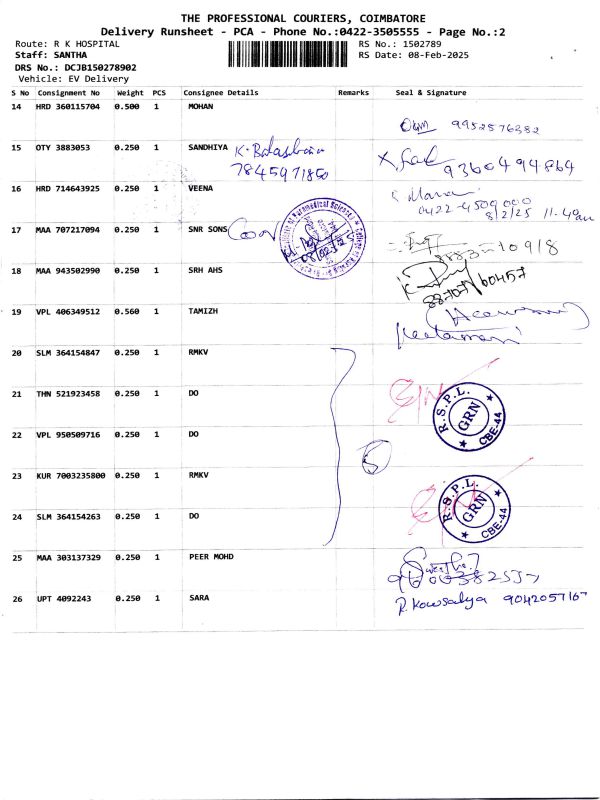 THE PROFESSIONAL COURIERS, COIMBATORE
Delivery Runsheet - PCA - Phone No.:0422-3505555 - Page No.:2
Route: R K HOSPITAL
RS No.: 1502789
Staff: SANTHA
RS Date: 08-Feb-2025
DRS No.: DCJB150278902
Vehicle: EV Delivery
S No Consignment No Weight PCS Consignee Details Remarks Seal & Signature
14 HRD 360115704 0.500 1 MOHAN
9952576382
15 OTY 3883053 0.250 1 SANDHIYA
7845971850
9360494864
16 HRD 714643925 0.250 1 VEENA
0422-4509000
8/2/25 11.40am
17 MAA 707217094 0.250 1 SNR SONS
08/02/25
18 MAA 943502990 0.250 1 SRH AHS
88707/60457
19 VPL 406349512 0.560 1 TAMIZH
20 SLM 364154847 0.250 1 RMKV
21 THN 521923458 0.250 1 DO
R.S.P.L.
GRN
CBE-44
22 VPL 950509716 0.250 1 DO
5
23 KUR 7003235800 0.250 1 RMKV
R.S.P.L.
GRN
CBE-44
24 SLM 364154263 0.250 1 DO
25 MAA 303137329 0.250 1 PEER MOHD
26 UPT 4092243 0.250 1 SARA
R. Kowsalya 9042057167